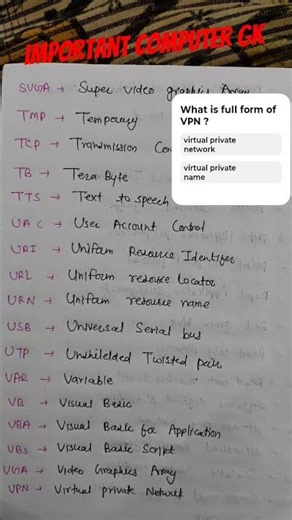 IMPORTANT COMPUTER GK
SVGA → Super video graphics Array
TMP → Temporary
TCP → Transmission Con
TB → Tera Byte
TTS → Text to speech
UAC → User Account Control
URI → Uniform Resource Identifer
URL → Uniform resource locator
URN → Uniform resource name
USB → Universal Serial bus
UTP → Unshielded Twisted pair
VAR → Variable
VB → Visual Basic
VBA → Visual Basic for Application
VBS → Visual Basic Script
VGA → Video Graphics Array
VPN → Virtual private Network
What is full form of
VPN ?
virtual private
network
virtual private
name